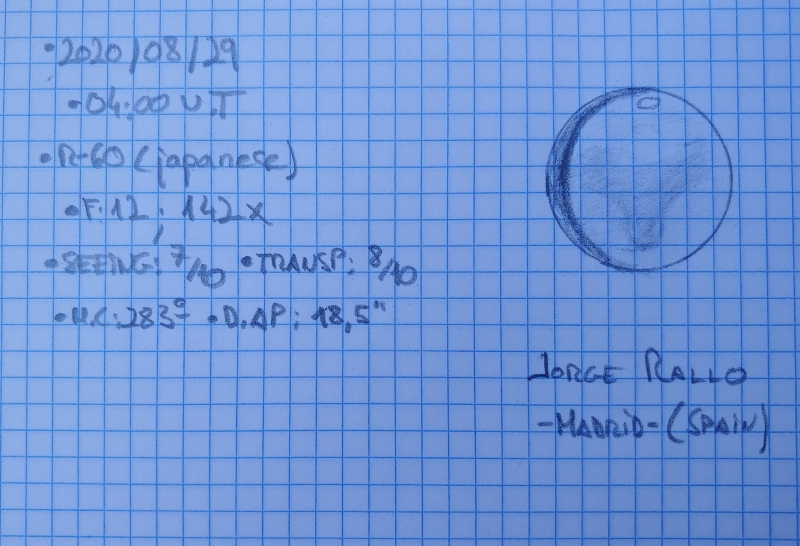 •2020/08/29
•04:00 U.T
•R-60 (japanese)
•F:12; 142x
•SEEING: 7/10 •TRANSP: 8/10
•M.C:283º •D.AP: 18,5"
JORGE RALLO
-MADRID- (SPAIN)